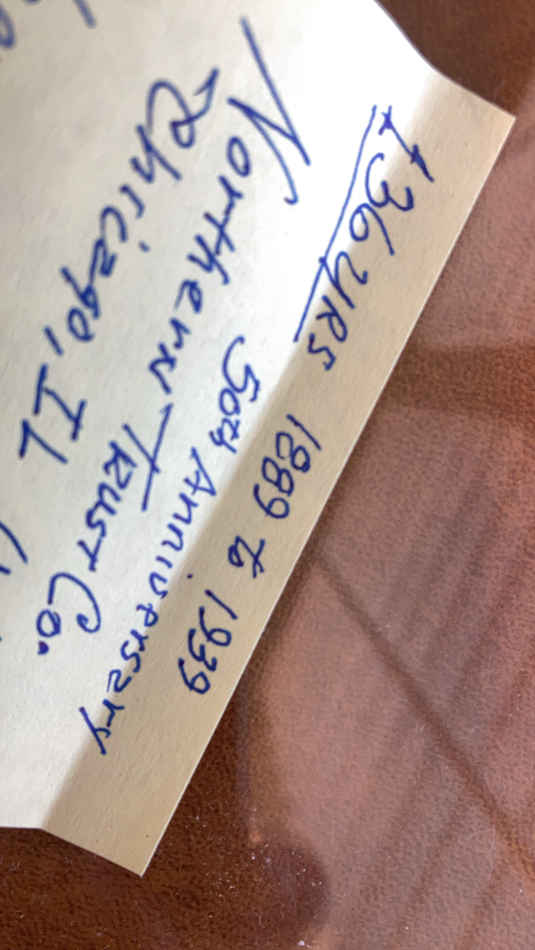 +36 YRS 1889 to 1939
50th Anniversary
Northern Trust Co.
Chicago, IL